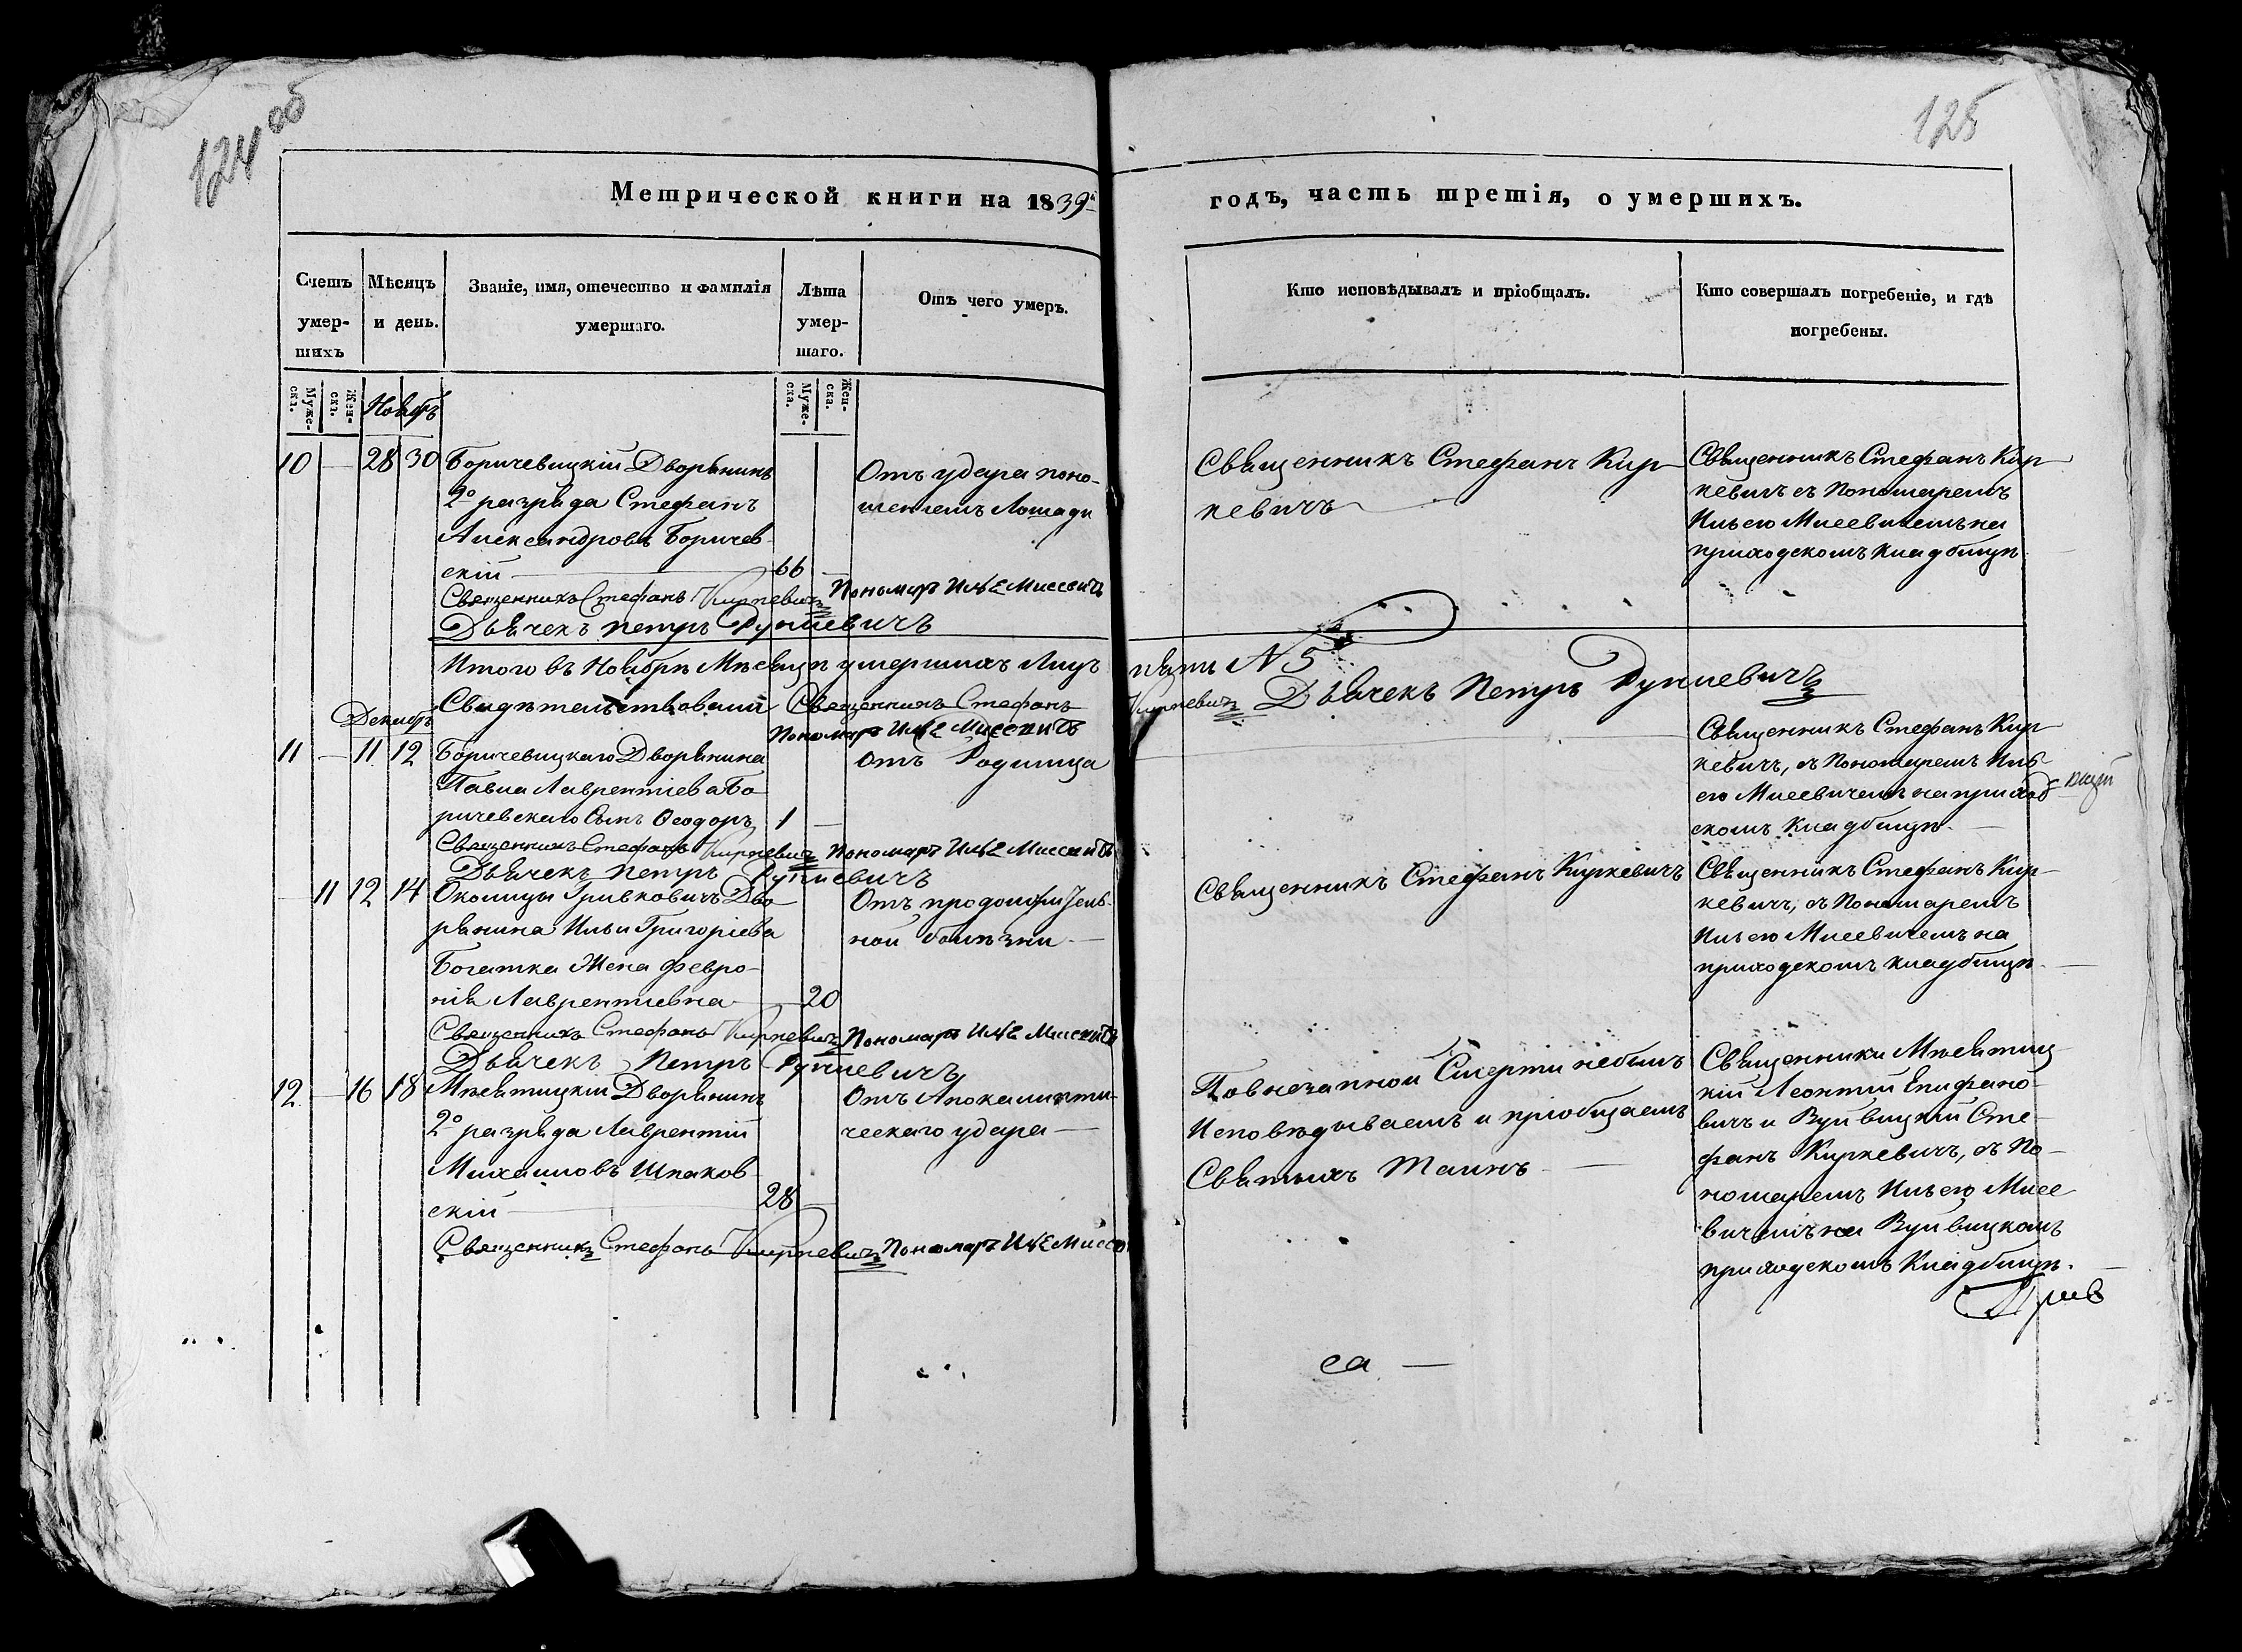 124 об
125
Метрической книги на 1839й
годъ, часть третія, о умершихъ.
Счетъ умер-шихъ
Мѣсяцъ и день.
Званіе, имя, отечество и фамилія умершаго.
Лѣта умер-шаго.
Отъ чего умеръ.
Кто исповѣдывалъ и пріобщалъ.
Кто совершалъ погребеніе, и гдѣ погребены.
Муже-ска.
Жен-ска.
Ноябрь
Муже-ска.
Жен-ска.
10 — 28 30 Боричевицкій Дворянинъ
2о разряда Стефанъ
Александровъ Боричев-
скій — 66 —
Отъ удара поно-
шеніемъ Лошади
Священникъ Стефанъ Кир-
кевичъ
Священникъ Стефанъ Кир-
кевичъ съ Пономаремъ
Ильею Мисевичемъ на
приходскомъ кладбищѣ
Священникъ Стефанъ Киркевичъ Пономарь Илья Мисевичъ
Дьячекъ Петръ
Итого въ Ноябрѣ Мѣсяцѣ умершихъ Лицъ пять N 5
Свидѣтельствовали Священникъ Стефанъ Киркевичъ Дьячекъ Петръ
Пономарь Илья Мисевичъ
Декабрь
11 — 11 12 Боричевицкаго Дворянина
Павла Лаврентіева Бо-
ричевскаго Сынъ Ѳеодоръ 1 —
Отъ Родимца
Священникъ Стефанъ Кир-
кевичъ, съ Пономаремъ Иль-
ею Мисевичемъ на приход-
скомъ Кладбищѣ. —
Священникъ Стефанъ Киркевичъ Пономарь Илья Мисевичъ
Дьячекъ Петръ
— 11 12 14 Околицы Гривковичъ Дво-
рянина Ильи Григоріева
Богатка Жена Февро-
нія Лаврентіевна — 20
Отъ продолжитель-
ной болѣзни —
Священникъ Стефанъ Киркевичъ
Священникъ Стефанъ Кир-
кевичъ, съ Пономаремъ
Ильею Мисевичемъ на
приходскомъ кладбищѣ. —
Священникъ Стефанъ Киркевичъ Пономарь Илья Мисевичъ
Дьячекъ Петръ
12 — 16 18 Мнѣятицкій Дворянинъ
2о разряда Лаврентій
Михаиловъ Шпаков-
скій — 28 —
Отъ Апокалипти-
ческаго удара —
По внезапной Смерти небылъ
Исповѣдываемъ и пріобщаемъ
Святыхъ Таинъ —
Священники Мнѣятиц-
кій Леонтій Епифано-
вичъ и Вуйвицкій Сте-
фанъ Киркевичъ, съ По-
номаремъ Ильею Мисе-
вичемъ на Вуйвицкомъ
приходскомъ Кладбищѣ. —
Священникъ Стефанъ Киркевичъ Пономарь Илья
са —